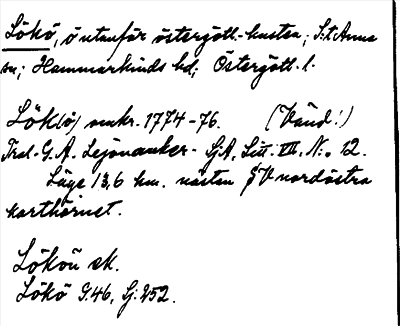 Lökö, ö utanför östergötl.-kusten; S:t Anna
sn; Hammarkinds hd; Östergötl. l.
Lök(ö) omkr. 1774-76. (Vänd!)
Trol. G. A. Lejonancker - SjA, Litt. VII, N:o 12.
Läge 13,6 km. nästan SV nordöstra
karthörnet.
Lökön ek.
Lökö G.46, Sj: 252.